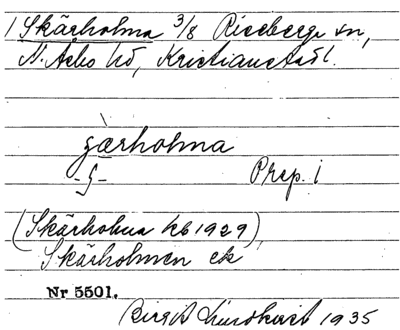 1 Skärholma 3/8 Riseberga sn,
N. Åsbo hd, Kristianstads l.
gærholma
-ʒ- Prep. i
(Skärholma kb 1929),
Skärholmen ek
Nr 5501.
Birgit Lindkvist 1935